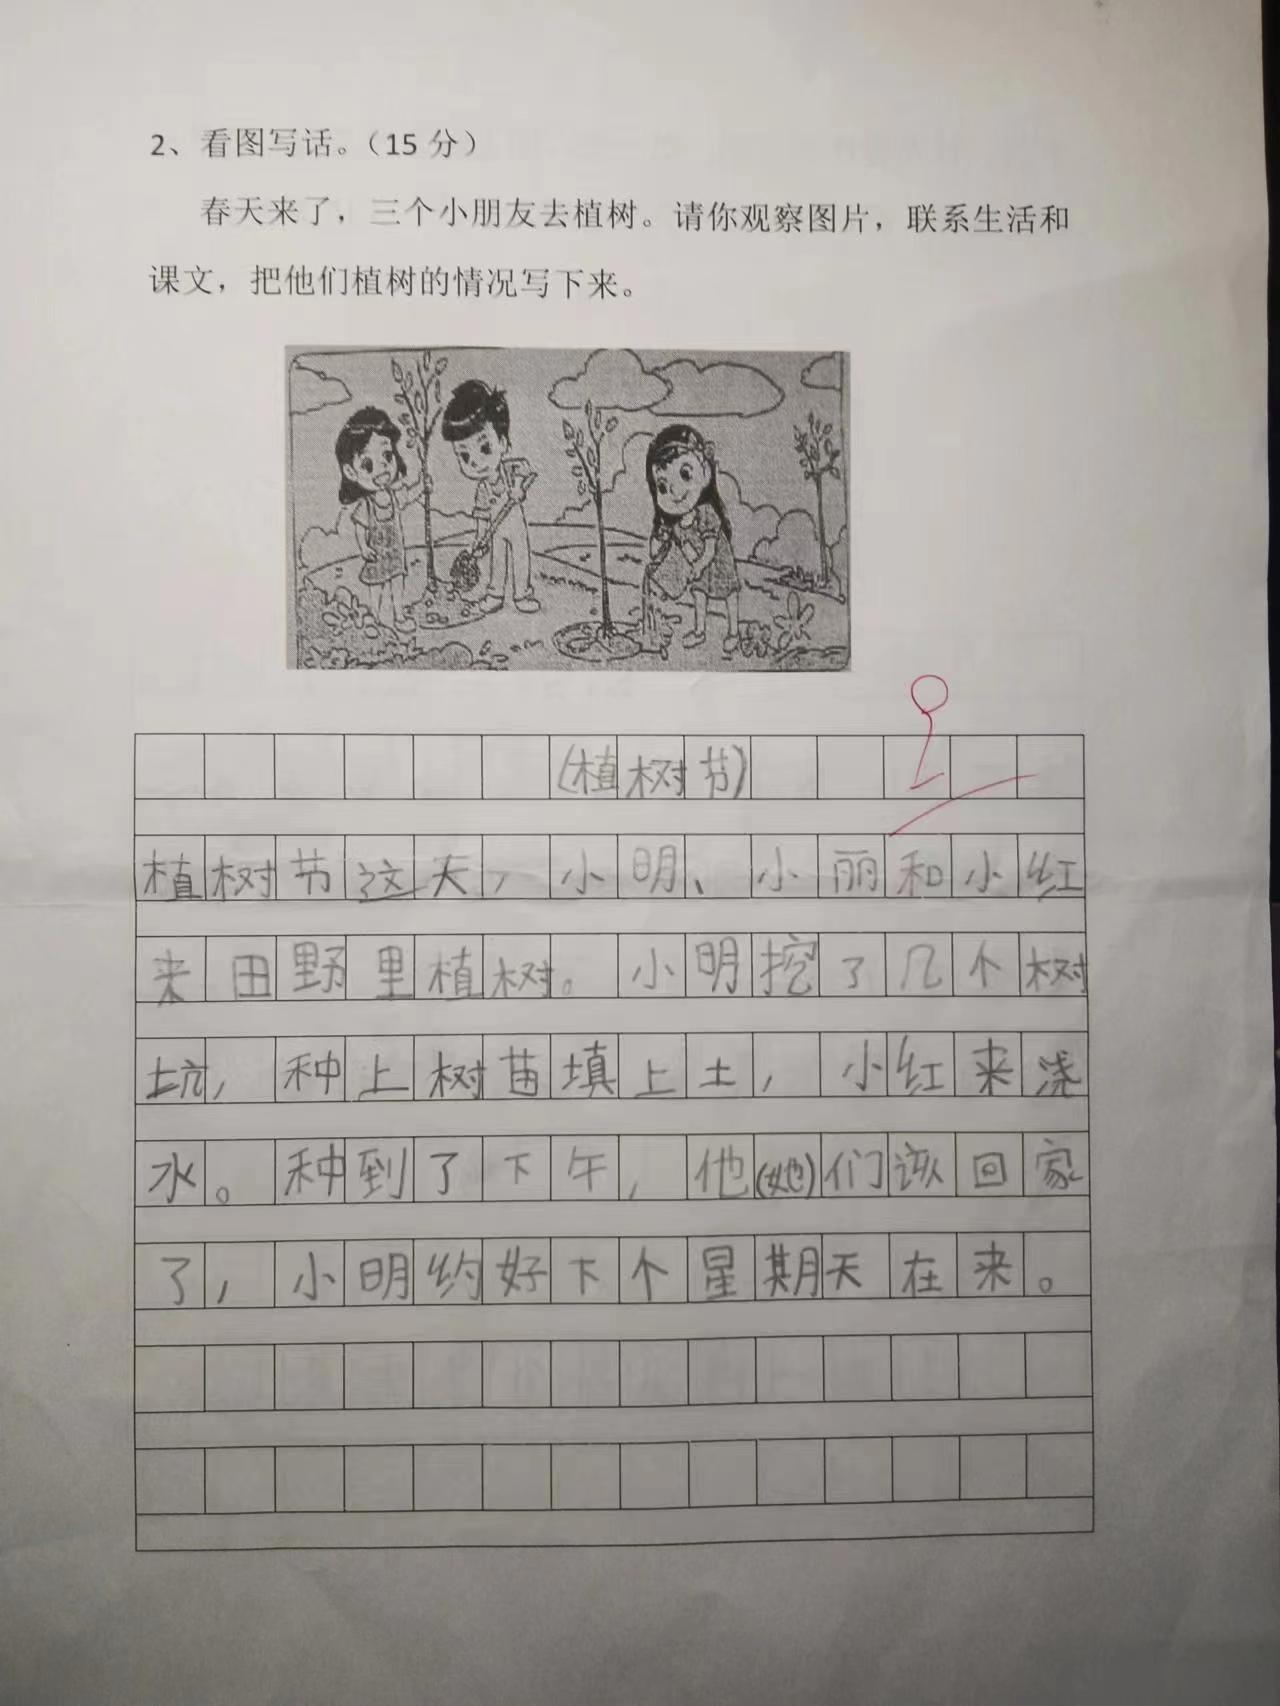 2、看图写话。（15 分）
春天来了，三个小朋友去植树。请你观察图片，联系生活和
课文，把他们植树的情况写下来。
（植树节）
植树节这天，小明、小丽和小红
来田野里植树。小明挖了几个树
坑，种上树苗填上土，小红来浇
水。种到了下午，他（她）们该回家
了，小明约好下个星期天在来。